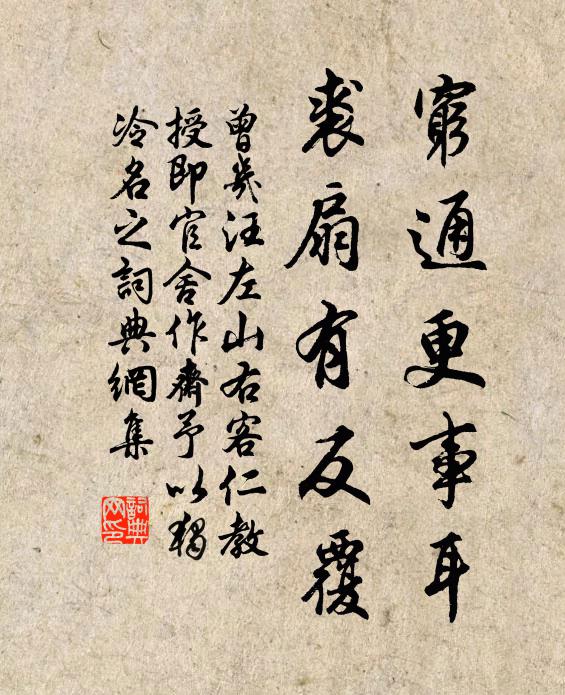 窮通更事耳
裘扇有反覆
曾幾汪左山右客仁教
授即官舍作齋予以獨
冷名之詞典網集
詞典網印